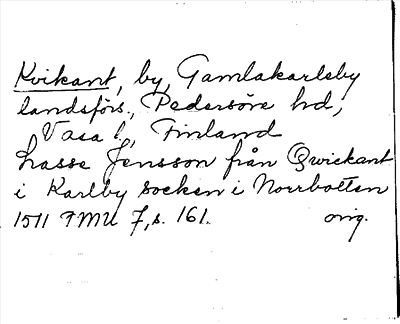 Kvikant, by, Gamlakarleby
landsförs., Pedersöre hd,
Vasa l., Finland
Lasse Jensson från Qwickant
i Karlby socken i Norrbotten
1511 FMU 7, s. 161. orig.